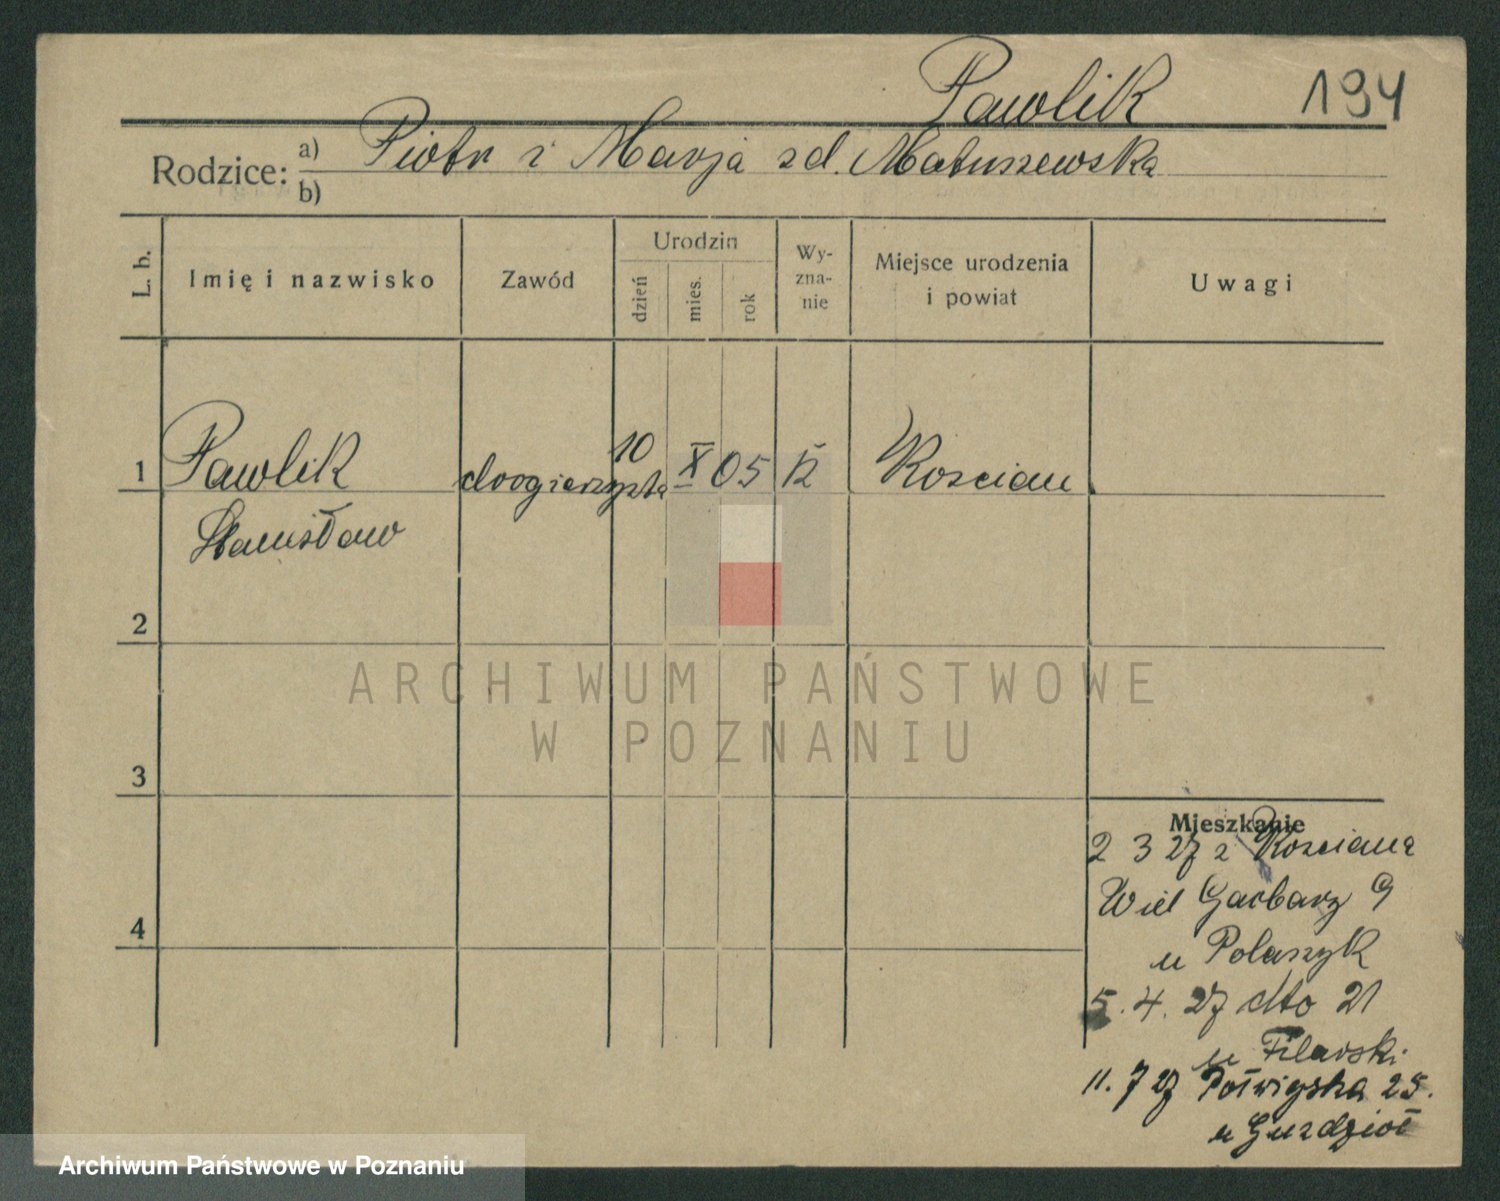 Pawlik 194
Rodzice: a) Piotr i Marja zd. Matuszewska
b)
L. b. Imię i nazwisko Zawód Urodzin dzień mies. rok Wyznanie Miejsce urodzenia i powiat Uwagi
1 Pawlik drogierzysta 10 X 05 K Koscian
Stanisław
2
3
4
Mieszkanie
2 3 27 z Kosciana
Wiel Garbarz 9
u Polaszyk
5. 4. 27 dto 21
u Filarski
11. 7 27 25.
u
ARCHIWUM PAŃSTWOWE
W POZNANIU
Archiwum Państwowe w Poznaniu